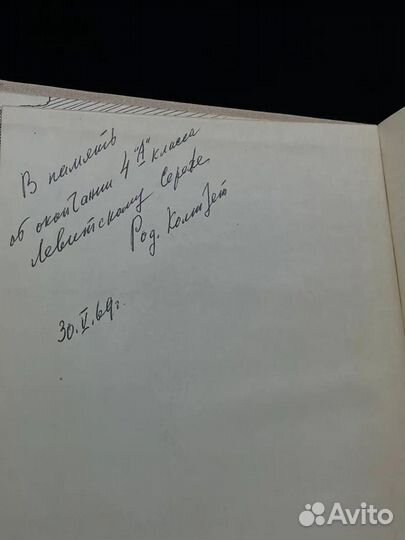 В память
об окончании 4 "А" класса
Левитскому Сереже
Род. Комитет
30.V.69г.
Avito